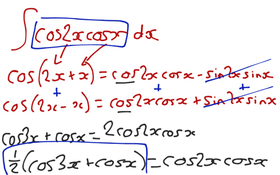 ∫ cos2x cosx dx
cos(2x+x) = cos2x cosx - sin2x sinx
+ + +
cos(2x-x) = cos2x cosx + sin2x sinx
cos3x + cosx = 2cos2x cosx
½(cos3x + cosx) = cos2x cosx